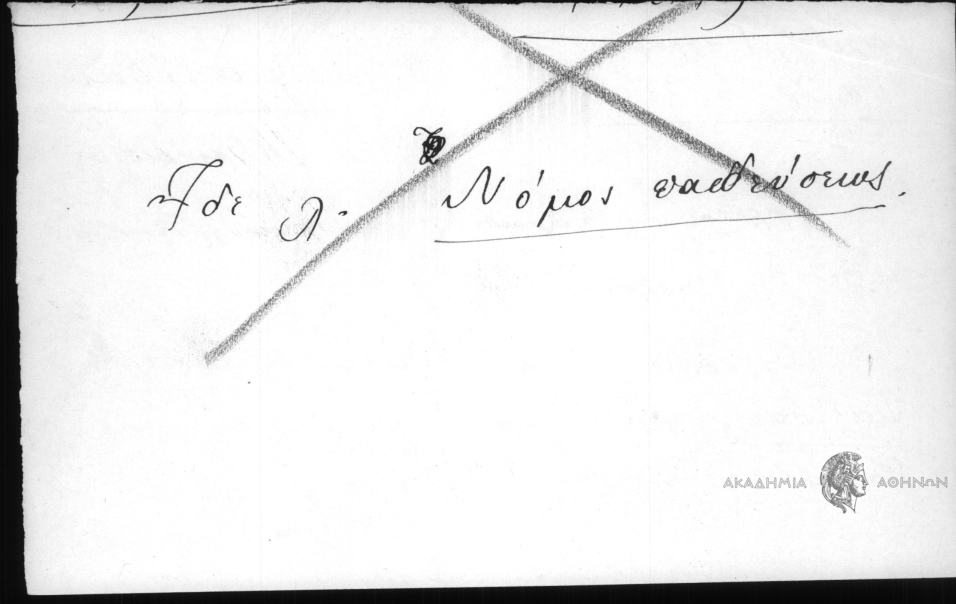 Ἴδε λ. Νόμος παιδεύσεως.
ΑΚΑΔΗΜΙΑ ΑΘΗΝΩΝ